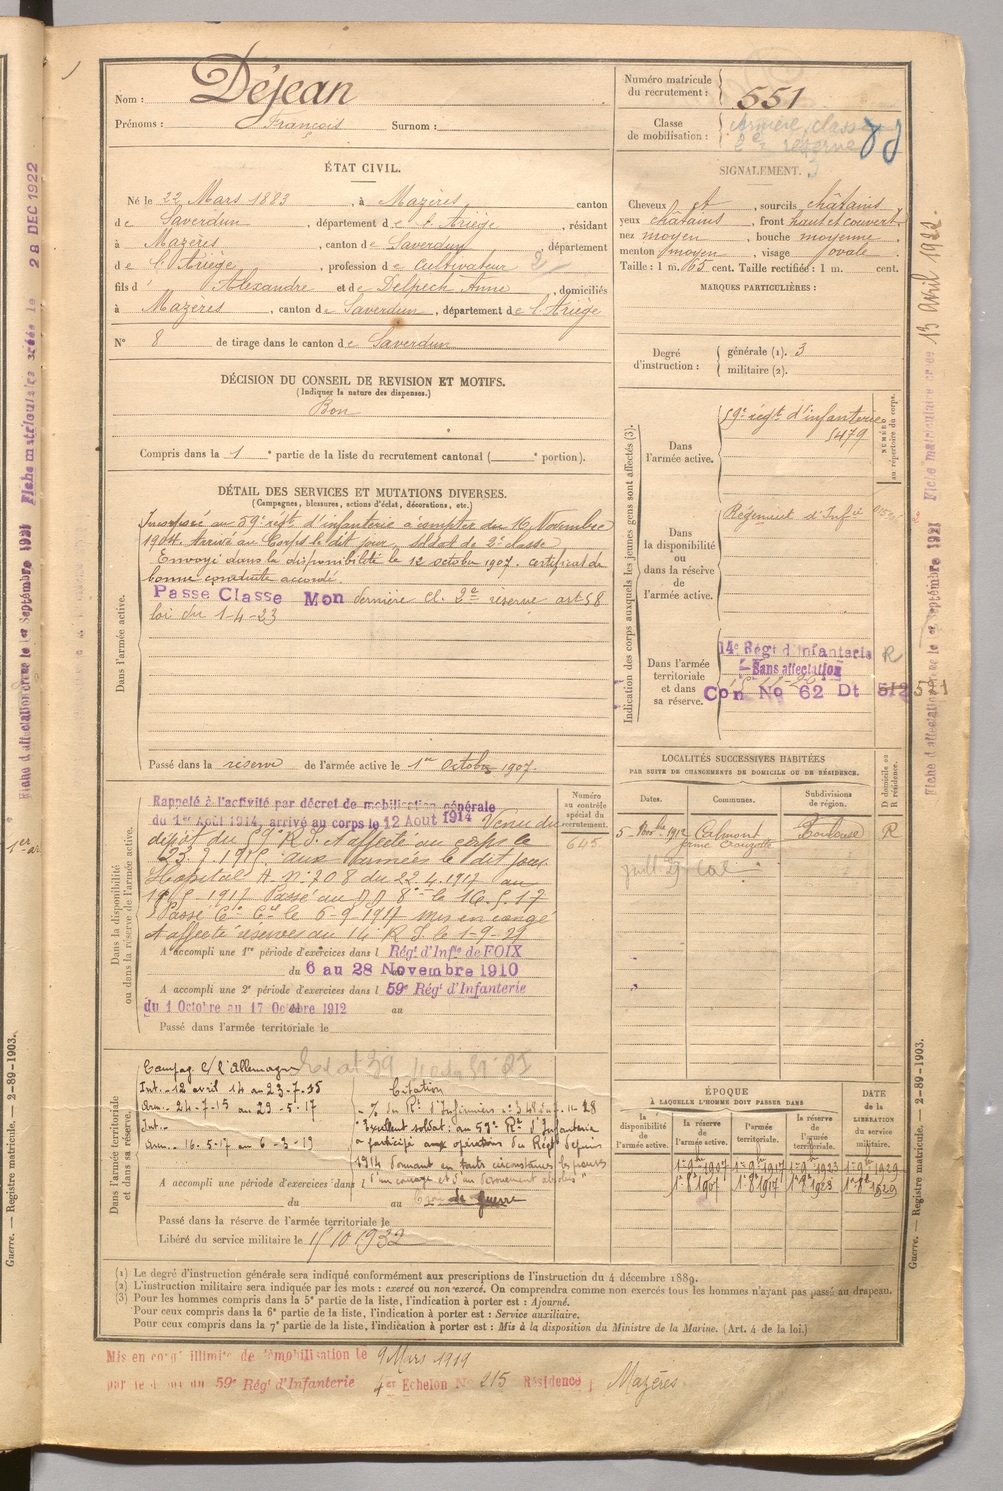 Nom : Déjean
Prénoms : François Surnom :
ÉTAT CIVIL.
Né le 22 Mars 1883, à Mazères canton
de Saverdun, département de l'Ariège, résidant
à Mazères, canton de Saverdun, département
de l'Ariège, profession de cultivateur
fils d' Alexandre et de Delpech Anne, domiciliés
à Mazères, canton de Saverdun, département de l'Ariège
N° 8 de tirage dans le canton de Saverdun
DÉCISION DU CONSEIL DE REVISION ET MOTIFS.
(Indiquer la nature des dispenses.)
Bon
Compris dans la 1 e partie de la liste du recrutement cantonal ( e portion).
DÉTAIL DES SERVICES ET MUTATIONS DIVERSES.
(Campagnes, blessures, actions d'éclat, décorations, etc.)
Dans l'armée active.
Incorporé au 59e régt d'infanterie à compter du 16 Novembre
1904. Arrivé au Corps le dit jour, soldat de 2e classe
Envoyé dans la disponibilité le 12 octobre 1907. Certificat de
bonne conduite accordé.
Passe Classe Mon dernière cl. 2e réserve art 58
loi du 1-4-23
Passé dans la réserve de l'armée active le 1er octobre 1907.
Dans la disponibilité
ou dans la réserve de l'armée active.
Numéro
au contrôle
spécial du
recrutement.
645
Rappelé à l'activité par décret de mobilisation générale
du 1er Août 1914, arrivé au corps le 12 Août 1914 Venu du
dépôt du 59e R.I. et affecté au corps le
23.7.1915 aux armées le dit jour
Hopital A. n° 208 du 22.4.1917 au
Passé au 8e le 16.5.17
Passé Cie le 6-9-1917 mis en congé
et affecté réserves au 14e R.I. le 1-9-29
A accompli une 1re période d'exercices dans l Régt d'Infie de FOIX
du 6 au 28 Novembre 1910
A accompli une 2e période d'exercices dans l 59e Régt d'Infanterie
du 1 Octobre au 17 Octobre 1912 au
Passé dans l'armée territoriale le
Dans l'armée territoriale
et dans sa réserve.
Campag c/ l'Allemagne
Int.- 12 avril 14 au 23-7-15
Arm.- 24-7-15 au 29-5-17
Int.-
Arm.- 16-5-17 au 6-3-19
Citation
"Excellent soldat au 59e Rt d'Infanterie
a participé aux opérations du Régt depuis
1914 donnant en toute circonstances les preuves
d'un courage et d'un dévouement absolus"
A accompli une période d'exercices dans l
du au Croix de guerre
Passé dans la réserve de l'armée territoriale le
Libéré du service militaire le 15/10/1932
Numéro matricule
du recrutement : 551
Classe
de mobilisation :
2e réserve
SIGNALEMENT.
Cheveux et, sourcils châtains
yeux châtains, front haut et couvert,
nez moyen, bouche moyenne,
menton moyen, visage ovale.
Taille : 1 m. 65 cent. Taille rectifiée : 1 m. cent.
MARQUES PARTICULIÈRES :
Degré
d'instruction :
générale (1). 3
militaire (2).
Indication des corps auxquels les jeunes gens sont affectés (3).
NUMÉRO
au répertoire du corps.
Dans
l'armée active.
59e régt d'infanterie
5479
Dans
la disponibilité
ou
dans la réserve
de
l'armée active.
Régiment d'Infie
Dans l'armée
territoriale
et dans
sa réserve.
14e Régt d'Infanterie R
Sans affectation
Con No 62 Dt 512 591
LOCALITÉS SUCCESSIVES HABITÉES
PAR SUITE DE CHANGEMENTS DE DOMICILE OU DE RÉSIDENCE.
Dates. Communes. Subdivisions
de région. D domicile ou
R résidence.
5 Novbre 1912 Calmont Toulouse R
ferme
ÉPOQUE
À LAQUELLE L'HOMME DOIT PASSER DANS
la
disponibilité
de
l'armée active.
la réserve
de
l'armée active.
l'armée
territoriale.
la réserve
de
l'armée
territoriale.
DATE
de la
LIBÉRATION
du service
militaire.
1er 9bre 1907 1er 9bre 1917 1er 9bre 1923 1er 9bre 1929
1er 8bre 1907 1er 8bre 1917 1er 8bre 1923 1er 8bre 1929
(1) Le degré d'instruction générale sera indiqué conformément aux prescriptions de l'instruction du 4 décembre 1889.
(2) L'instruction militaire sera indiquée par les mots : exercé ou non exercé. On comprendra comme non exercés tous les hommes n'ayant pas passé au drapeau.
(3) Pour les hommes compris dans la 5e partie de la liste, l'indication à porter est : Ajourné.
Pour ceux compris dans la 6e partie de la liste, l'indication à porter est : Service auxiliaire.
Pour ceux compris dans la 7e partie de la liste, l'indication à porter est : Mis à la disposition du Ministre de la Marine. (Art. 4 de la loi.)
Mis en congé illimité de démobilisation le 9 Mars 1919
par le dépôt du 59e Régt d'Infanterie 4er Echelon No 215 Résidence Mazères
Guerre. — Registre matricule. — 2-89-1903.
Guerre. — Registre matricule. — 2-89-1903.
Fiche d'affectation créée le 1er Septembre 1921 Fiche matriculaire créée le 28 DEC 1922
Fiche d'affectation créée le 1er Septembre 1921 Fiche matriculaire créée 13 avril 1922.